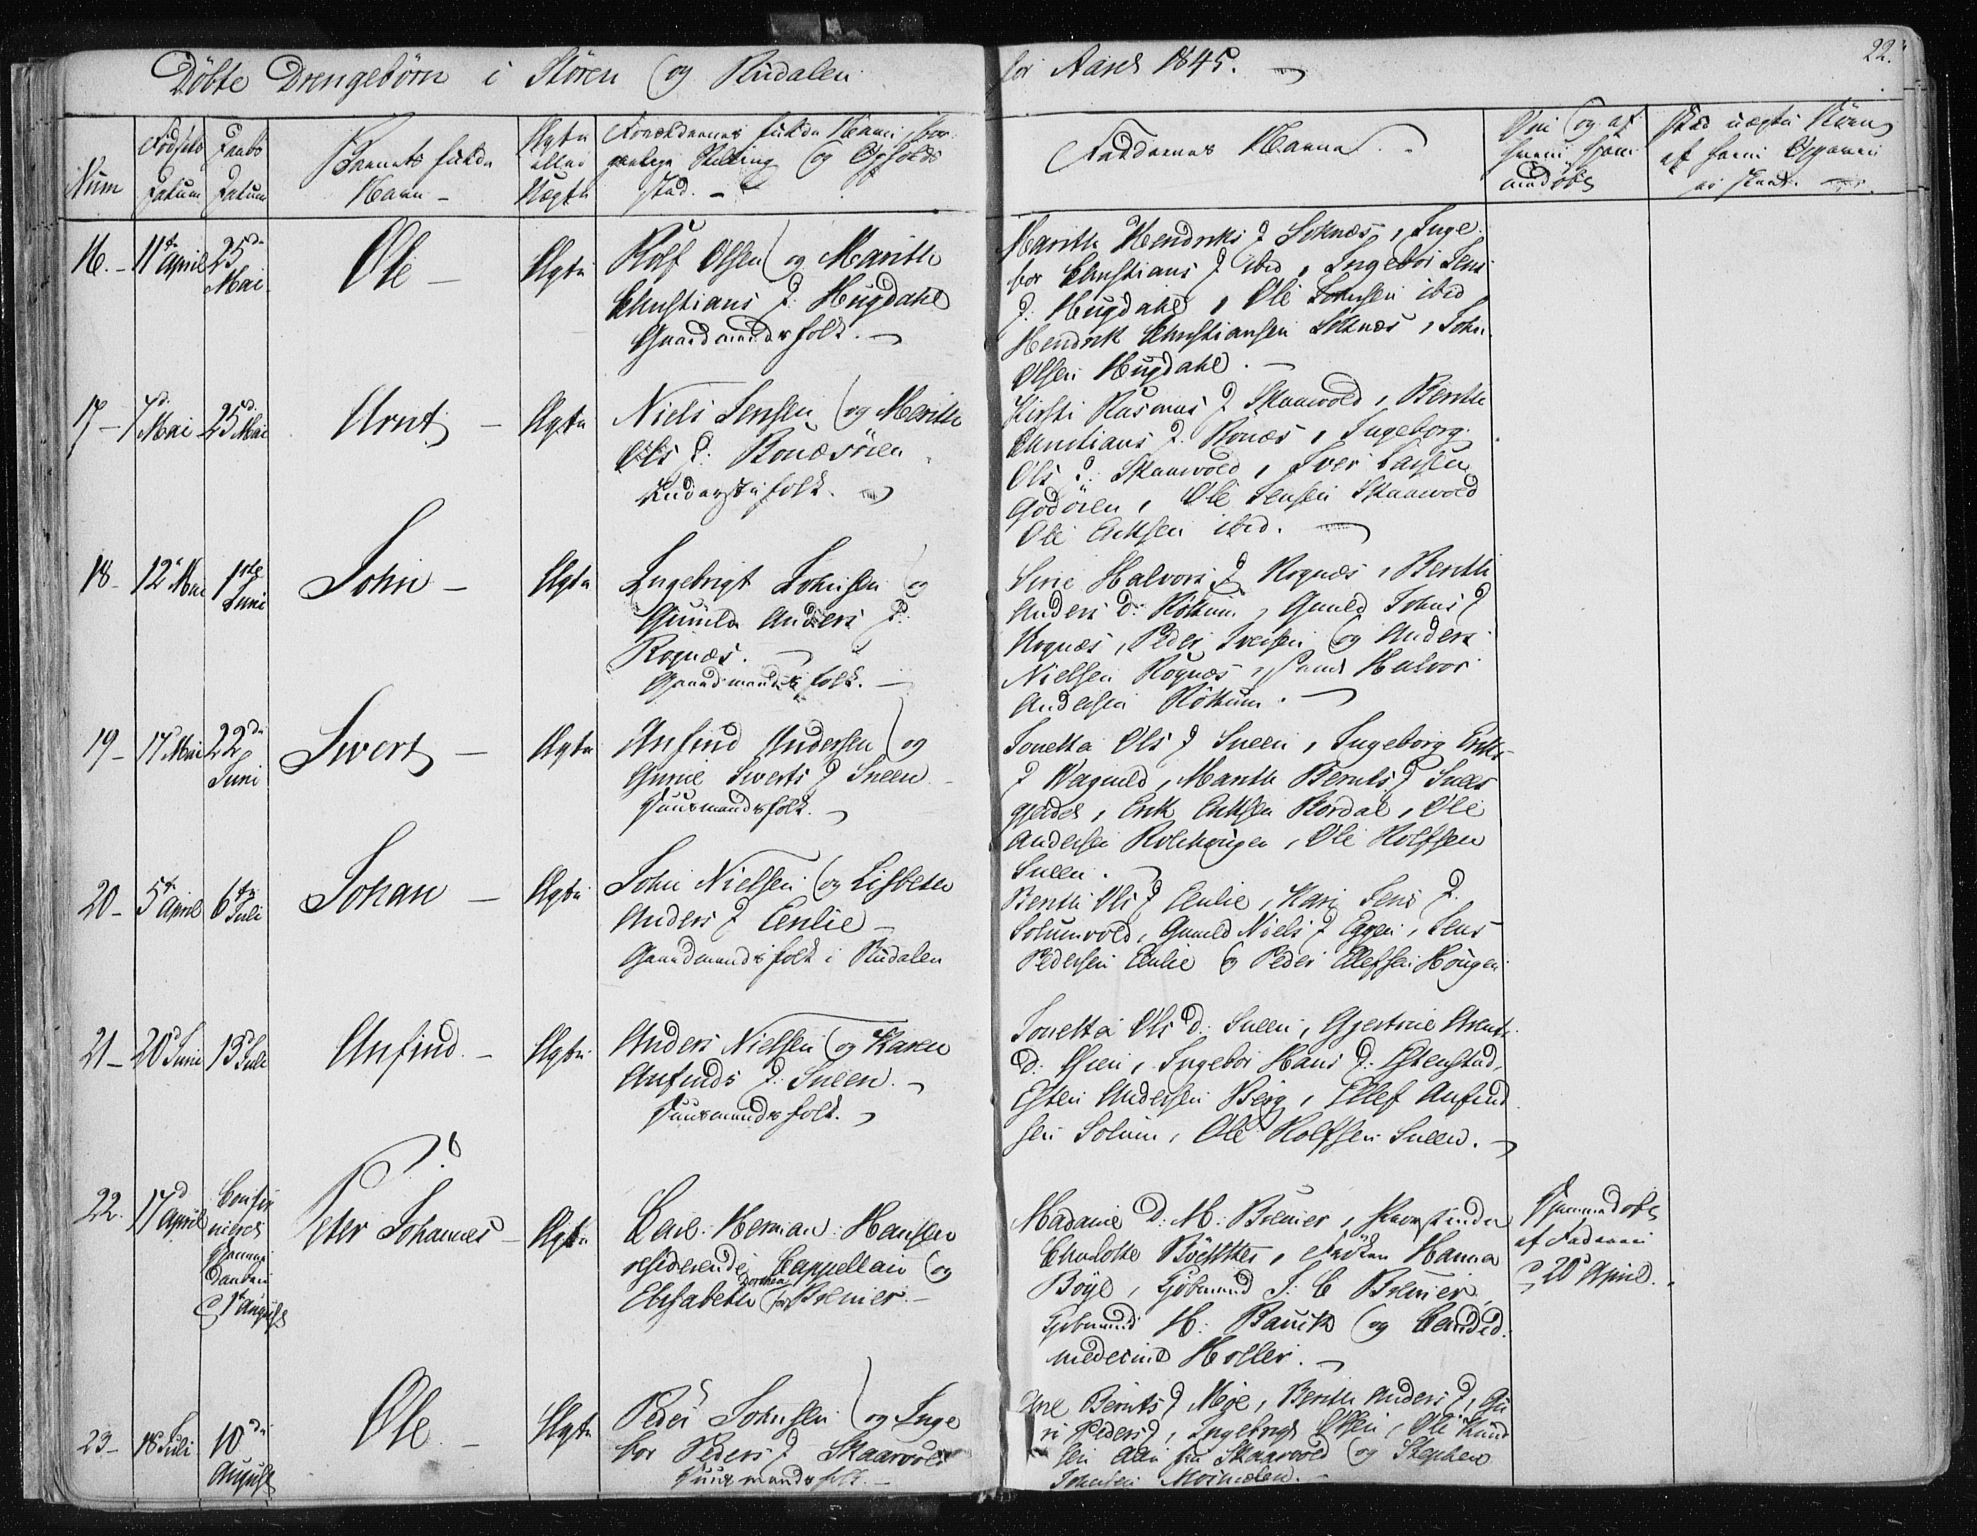 Döbte Drengebörn i Stören og Rudalen
for Aaret 1845.
22.
Num
Fødsels Datum
Daabs Datum
Barnets fulde Navn
Ægte eller Uægte
Forældrenes fulde Navn, bor-
gerlige Stilling og Opholds
sted.
Faddernes Navne.
Om og af
hvem hjem
medöbt
16. 11te April
25de Mai
Ole
Ægte
Rolf Olsen og Marith
Christians D. Hugdahl
Gaardmandsfolk.
Marith Hendriks D Soknæs, Inge
bor Christians D ibid, Ingebor Jens
D: Hugdahl, Ole Johnsen ibid
Hendrik Christiansen Soknæs, John
Olsen Hugdahl.
17 7d Mai
25d Mai
Arnt
Ægte
Niels Jensen og Merith
Ols D: Ronæsöien
Inderstefolk.
Kirsti Rasmus D Skaarvold, Berith
Christians D. Ronæs, Ingeborg
Ols D: Skaarvold, Iver Larsen
Godöien, Ole Jensen Skaarvold
Ole Eriksen ibid.
18 12 Mai
1ste Juni
John
Ægte
Ingebrigt Johnsen og
Gunild Anders D:
Rognæs.
Gaardmandsfolk.
Sirie Halvors D Rognæs, Berith
Anders D: Röttum, Gunild Johns D
Rognæs, Peder Iversen og Anders
Nielsen Rognæs, samt Halvor
Andersen Röttum.
19 17 Mai
22de Juni
Sivert
Ægte
Anfind Andersen og
Gurie Siverts D Sneen
Huusmandsfolk.
Tonetta Ols D Sneen, Ingeborg Eriks
D Vagnild, Marith Bernts D Snees
gjerdet, Erik Eriksen Bordal, Ole
Andersen Rolshaugen, Ole Rolfsen
Sneen.
20 5te April
6te Juli
Johan
Ægte
John Nielsen og Lisbeth
Anders D Eenlie
Gaardmandsfolk i Rudalen
Berith Ols D Eenlie, Kari Jens D.
Solumvold, Gunild Niels D Eggen, Jens
Pedersen Eenlie og Peder Ellefsen Hougen
21 20d Juni
13d Juli
Anfind.
Ægte
Anders Nielsen og Karen
Anfinds D. Sneen.
Huusmandsfolk.
Tonetta Ols D: Sneen, Gjertrue Arents
D: Oien, Ingebor Hans D: Estenstad,
Esten Andersen Berg, Ellef Anfind
sen Solum, Ole Rolfsen Sneen.
22. 17d April
Confir
meret
Hjemme
Daaben
d 1te August
Peter Johannes
Ægte
Carl Herman Hanssen
residerende Cappellan og
Elisabeth Dorthea f Bremer.
Madame D. M. Bremer,
Charlotte, Fröken Hanna
Böye, Kjöbmand J. C Bremer,
Kjöbmand H. Bauck og Candid.
medecinæ Holler.
Hjemmedöbt
af Faderen
d 20d April.
23 18 Juli
10de August
Ole
Ægte
Peder Johnsen og Inge
bor Peders D Skaarvold
Huusmandsfolk.
Ane Bernts D Moe, Berith Anders D, Gu
ri Peders D, Ingebrigt Olsen, Ole Knud
sen alle fra Skaarvold og Stephen
Johnsen Moimælen.